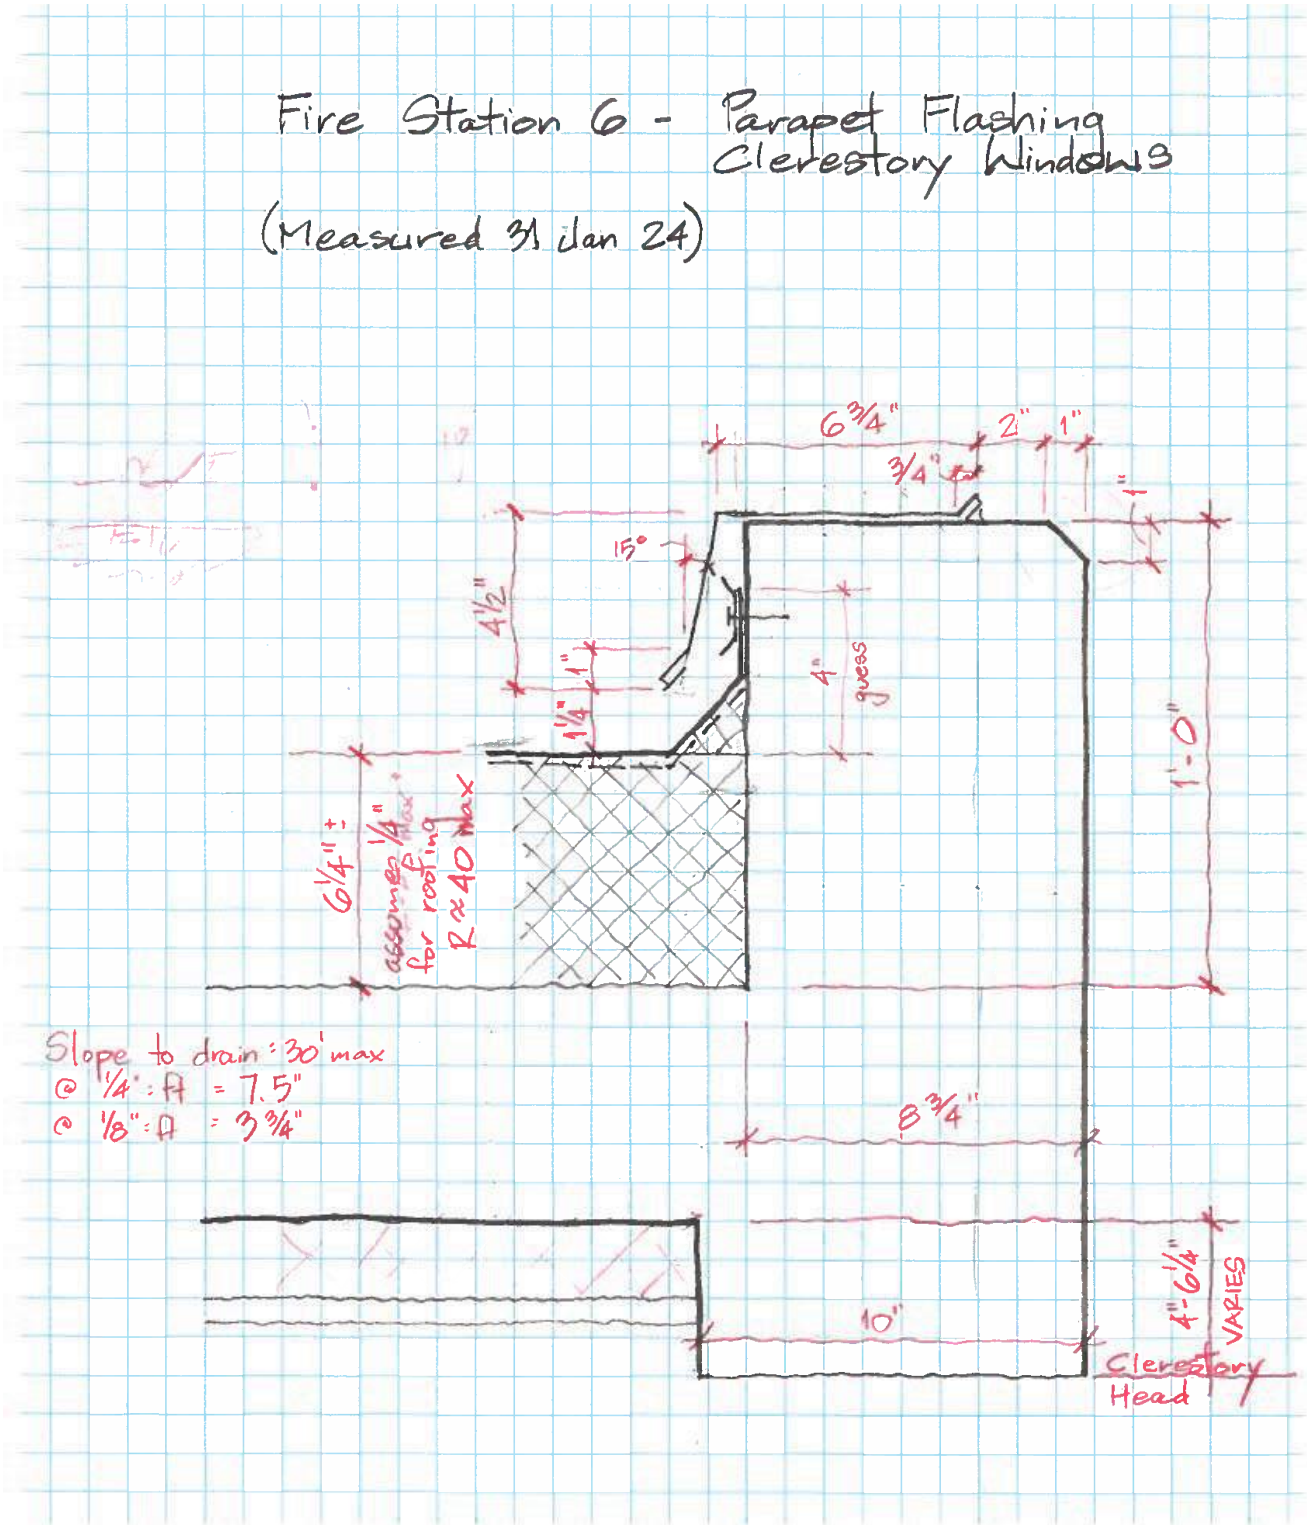 Fire Station 6 - Parapet Flashing
Clerestory Windows
(Measured 31 Jan 24)
6 3/4"
2"
1"
3/4"
1"
15°
4 1/2"
1"
1 1/4"
4"
guess
1'-0"
6 1/4" ±
assumes 1/4" max
for roofing
R≈40 max
Slope to drain: 30' max
@ 1/4": ft = 7.5"
@ 1/8": ft = 3 3/4"
8 3/4"
10"
4"-6 1/4"
VARIES
Clerestory
Head